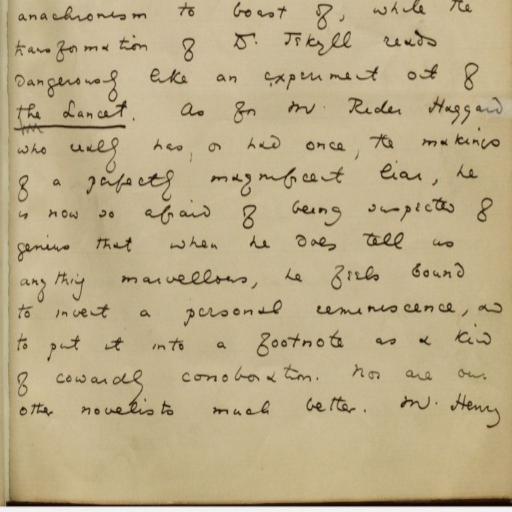 anachronism to boast of, while the
transformation of Dr. Jekyll reads
dangerously like an experiment out of
the Lancet. As for Mr. Rider Haggard
who really has, or had once, the makings
of a perfectly magnificent liar, he
is now so afraid of being suspected of
genius that when he does tell us
anything marvellous, he feels bound
to invent a personal reminiscence, and
to put it into a footnote as a kind
of cowardly corroboration. Nor are our
other novelists much better. Mr. Henry